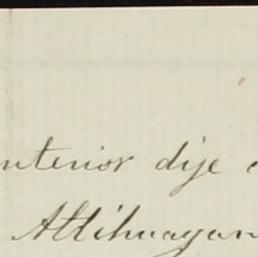 nterior dije
Attihuagan